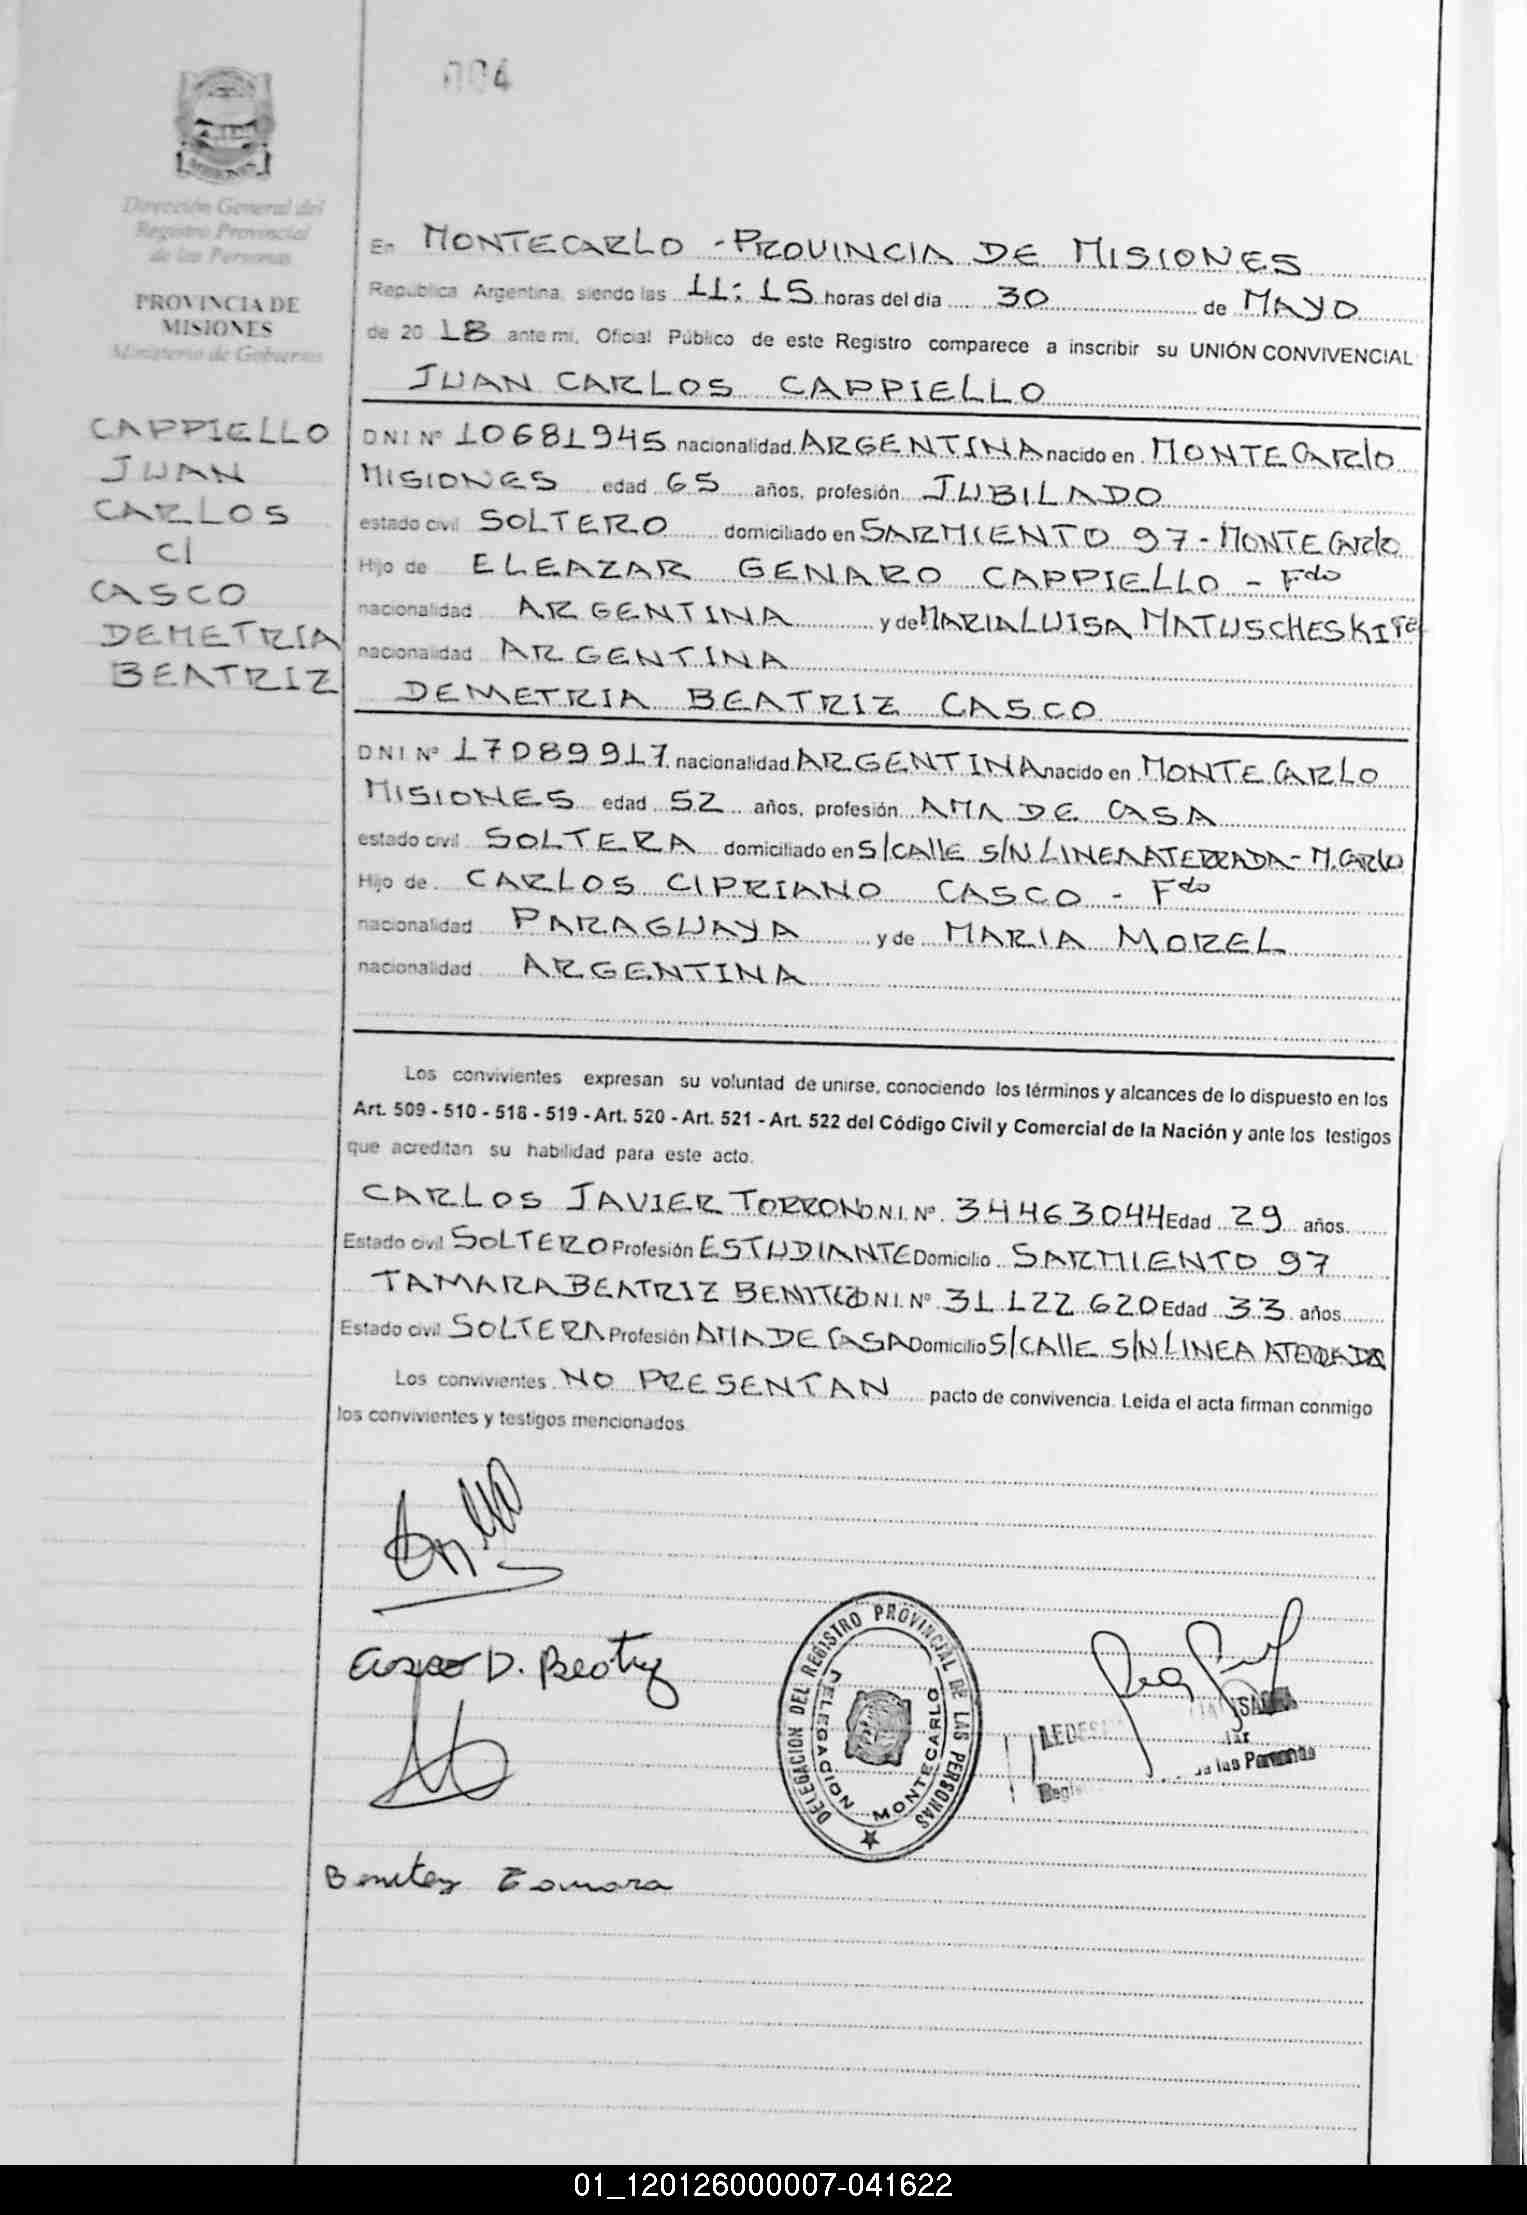 004
MISIONES
Dirección General del
Registro Provincial
de las Personas
PROVINCIA DE
MISIONES
Ministerio de Gobierno
CAPPIELLO
JUAN
CARLOS
C/
CASCO
DEMETRIA
BEATRIZ
En MONTECARLO - PROVINCIA DE MISIONES
República Argentina, siendo las 11:15 horas del día 30 de MAYO
de 2018 ante mi, Oficial Público de este Registro comparece a inscribir su UNIÓN CONVIVENCIAL
JUAN CARLOS CAPPIELLO
DNI Nº 10681945 nacionalidad ARGENTINA nacido en MONTECARlO
MISIONES edad 65 años, profesión JUBILADO
estado civil SOLTERO domiciliado en SARMIENTO 97 - MONTECARlo
Hijo de ELEAZAR GENARO CAPPIELLO - Fdo
nacionalidad ARGENTINA y de MARIA LUISA MATUSCHESKI
nacionalidad ARGENTINA
DEMETRIA BEATRIZ CASCO
DNI Nº 17089917 nacionalidad ARGENTINA nacido en MONTECARLO
MISIONES edad 52 años, profesión AMA DE CASA
estado civil SOLTERA domiciliado en S/CAllE S/N LINEA ATERRADA - M.CARlo
Hijo de CARLOS CIPRIANO CASCO - Fdo
nacionalidad PARAGUAYA y de MARIA MOREL
nacionalidad ARGENTINA
Los convivientes expresan su voluntad de unirse, conociendo los términos y alcances de lo dispuesto en los
Art. 509 - 510 - 518 - 519 - Art. 520 - Art. 521 - Art. 522 del Código Civil y Comercial de la Nación y ante los testigos
que acreditan su habilidad para este acto.
CARLOS JAVIER TORRON D.N.I. Nº 34463044 Edad 29 años
Estado civil SOLTERO Profesión ESTUDIANTE Domicilio SARMIENTO 97
TAMARA BEATRIZ BENITEZ D.N.I. Nº 31122620 Edad 33 años
Estado civil SOLTERA Profesión AMA DE CASA Domicilio S/CAllE S/N LINEA ATERRADA
Los convivientes NO PRESENTAN pacto de convivencia. Leída el acta firman conmigo
los convivientes y testigos mencionados.
Casco D. Beatriz
DELEGACION DEL REGISTRO PROVINCIAL DE LAS PERSONAS
DELEGACION MONTECARLO
las Personas
Benitez Tamara
01_120126000007-041622